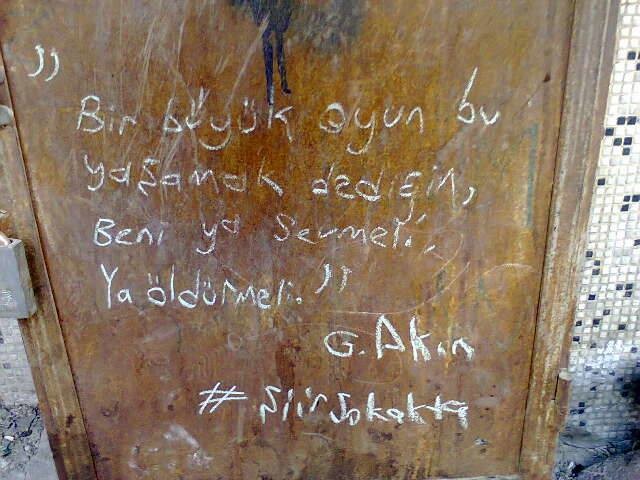 "
Bir büyük oyun bu
yaşamak dediğin,
Beni ya Sevmeli,
Ya öldürmeli."
G. Akın
#şiirsokakta